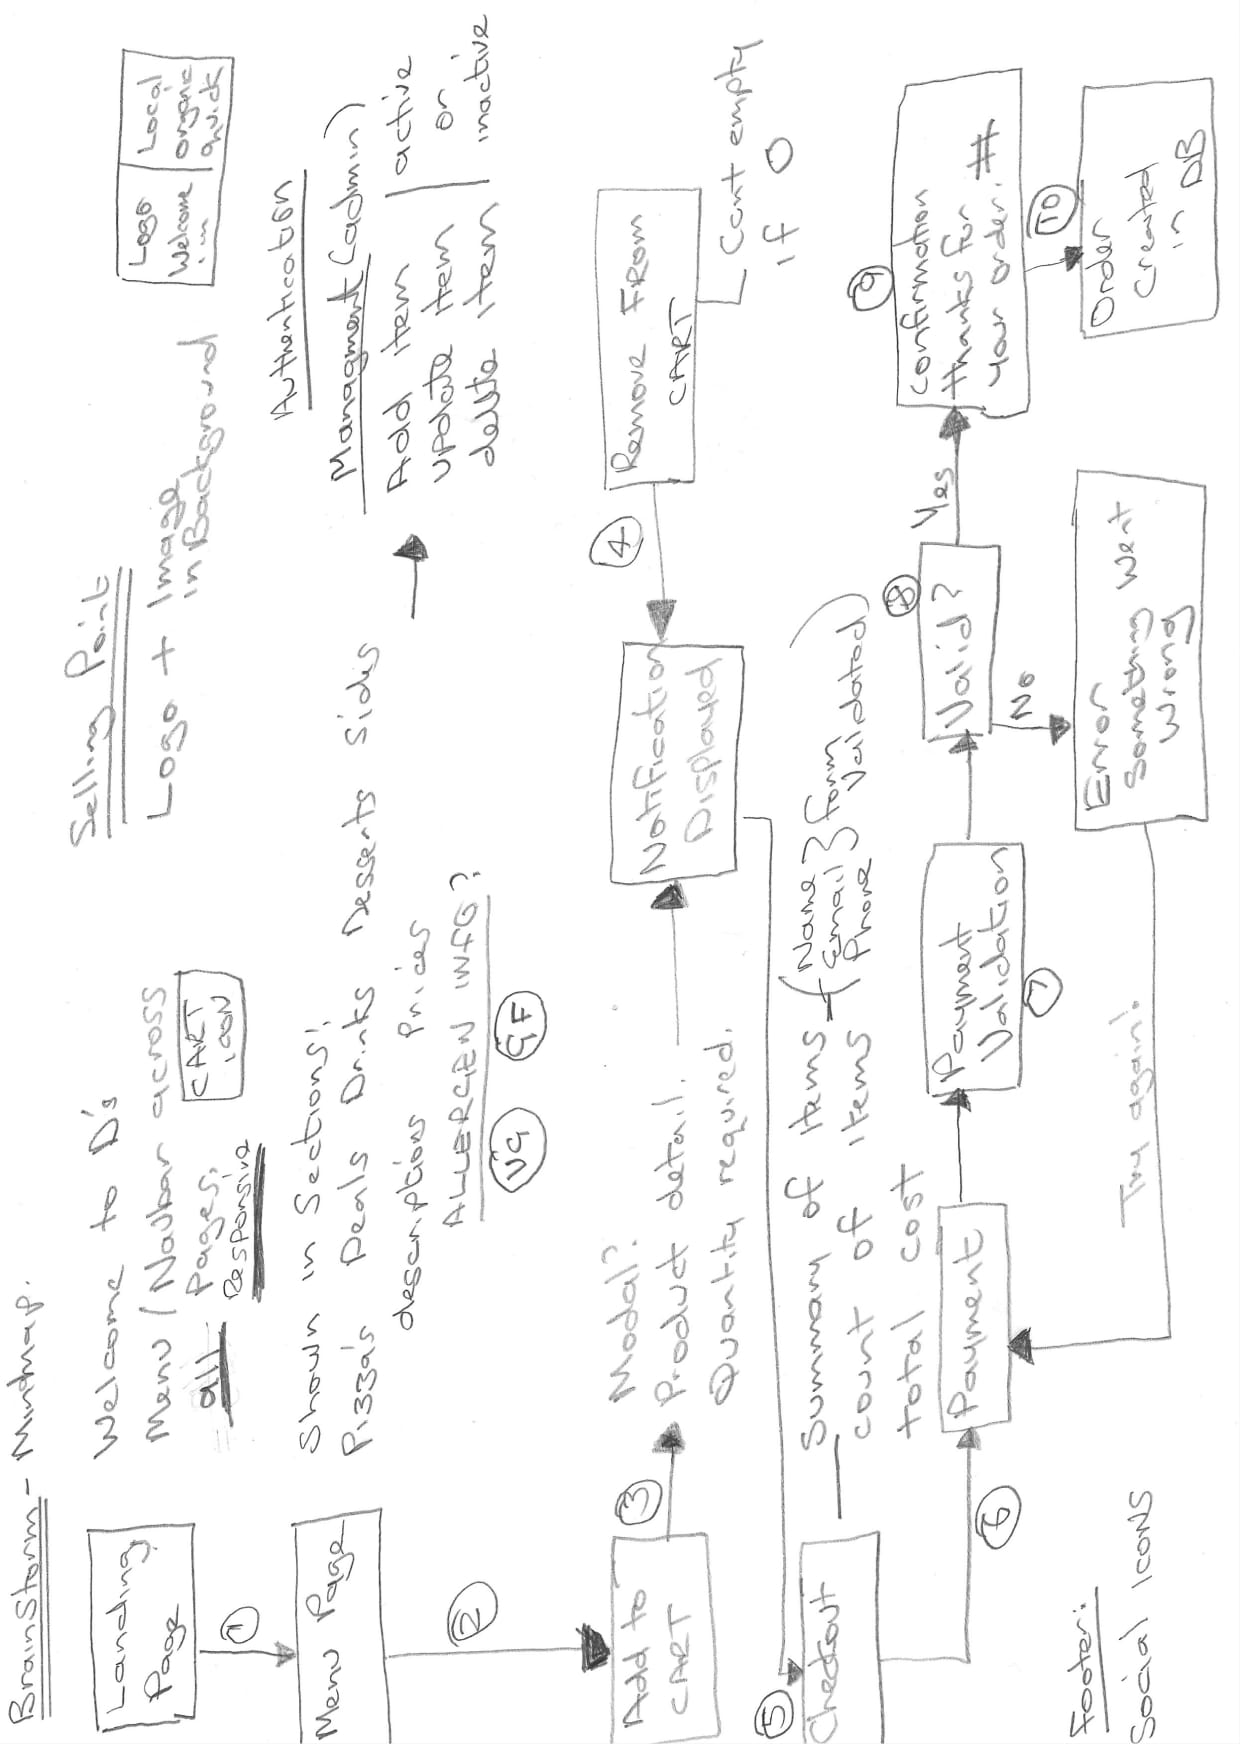 BrainStorm - Mindmap.
Landing
Page
Welcome to D's
Menu / Navbar across
all Pages,
Responsive
CART
ICON
Selling Point
Logo + Image
in Background
Logo
Welcome
Local
organic
quick
1
Menu Page
Shown in Sections!
Pizza's Deals Drinks Desserts Sides
descriptions Prices
ALLERGEN INFO?
VG GF
Authentication
Managment (admin)
Add item
update item
delete item
active
or
inactive
2
Add to
CART
3
Modal?
Product detail.
Quantity required.
Notification
Displayed
4
Remove From
CART
Cart empty
if 0
5
Checkout
Summary of items
count of items
total cost
(Name
Email
Phone } form
Validated)
6
Payment
Payment
Validation
7
8
Valid?
Yes
No
9
Confirmation
thanks for
your order. #
10
Order
Created
in DB
Error
Something Went
Wrong
Try again!
Footer:
Social Icons